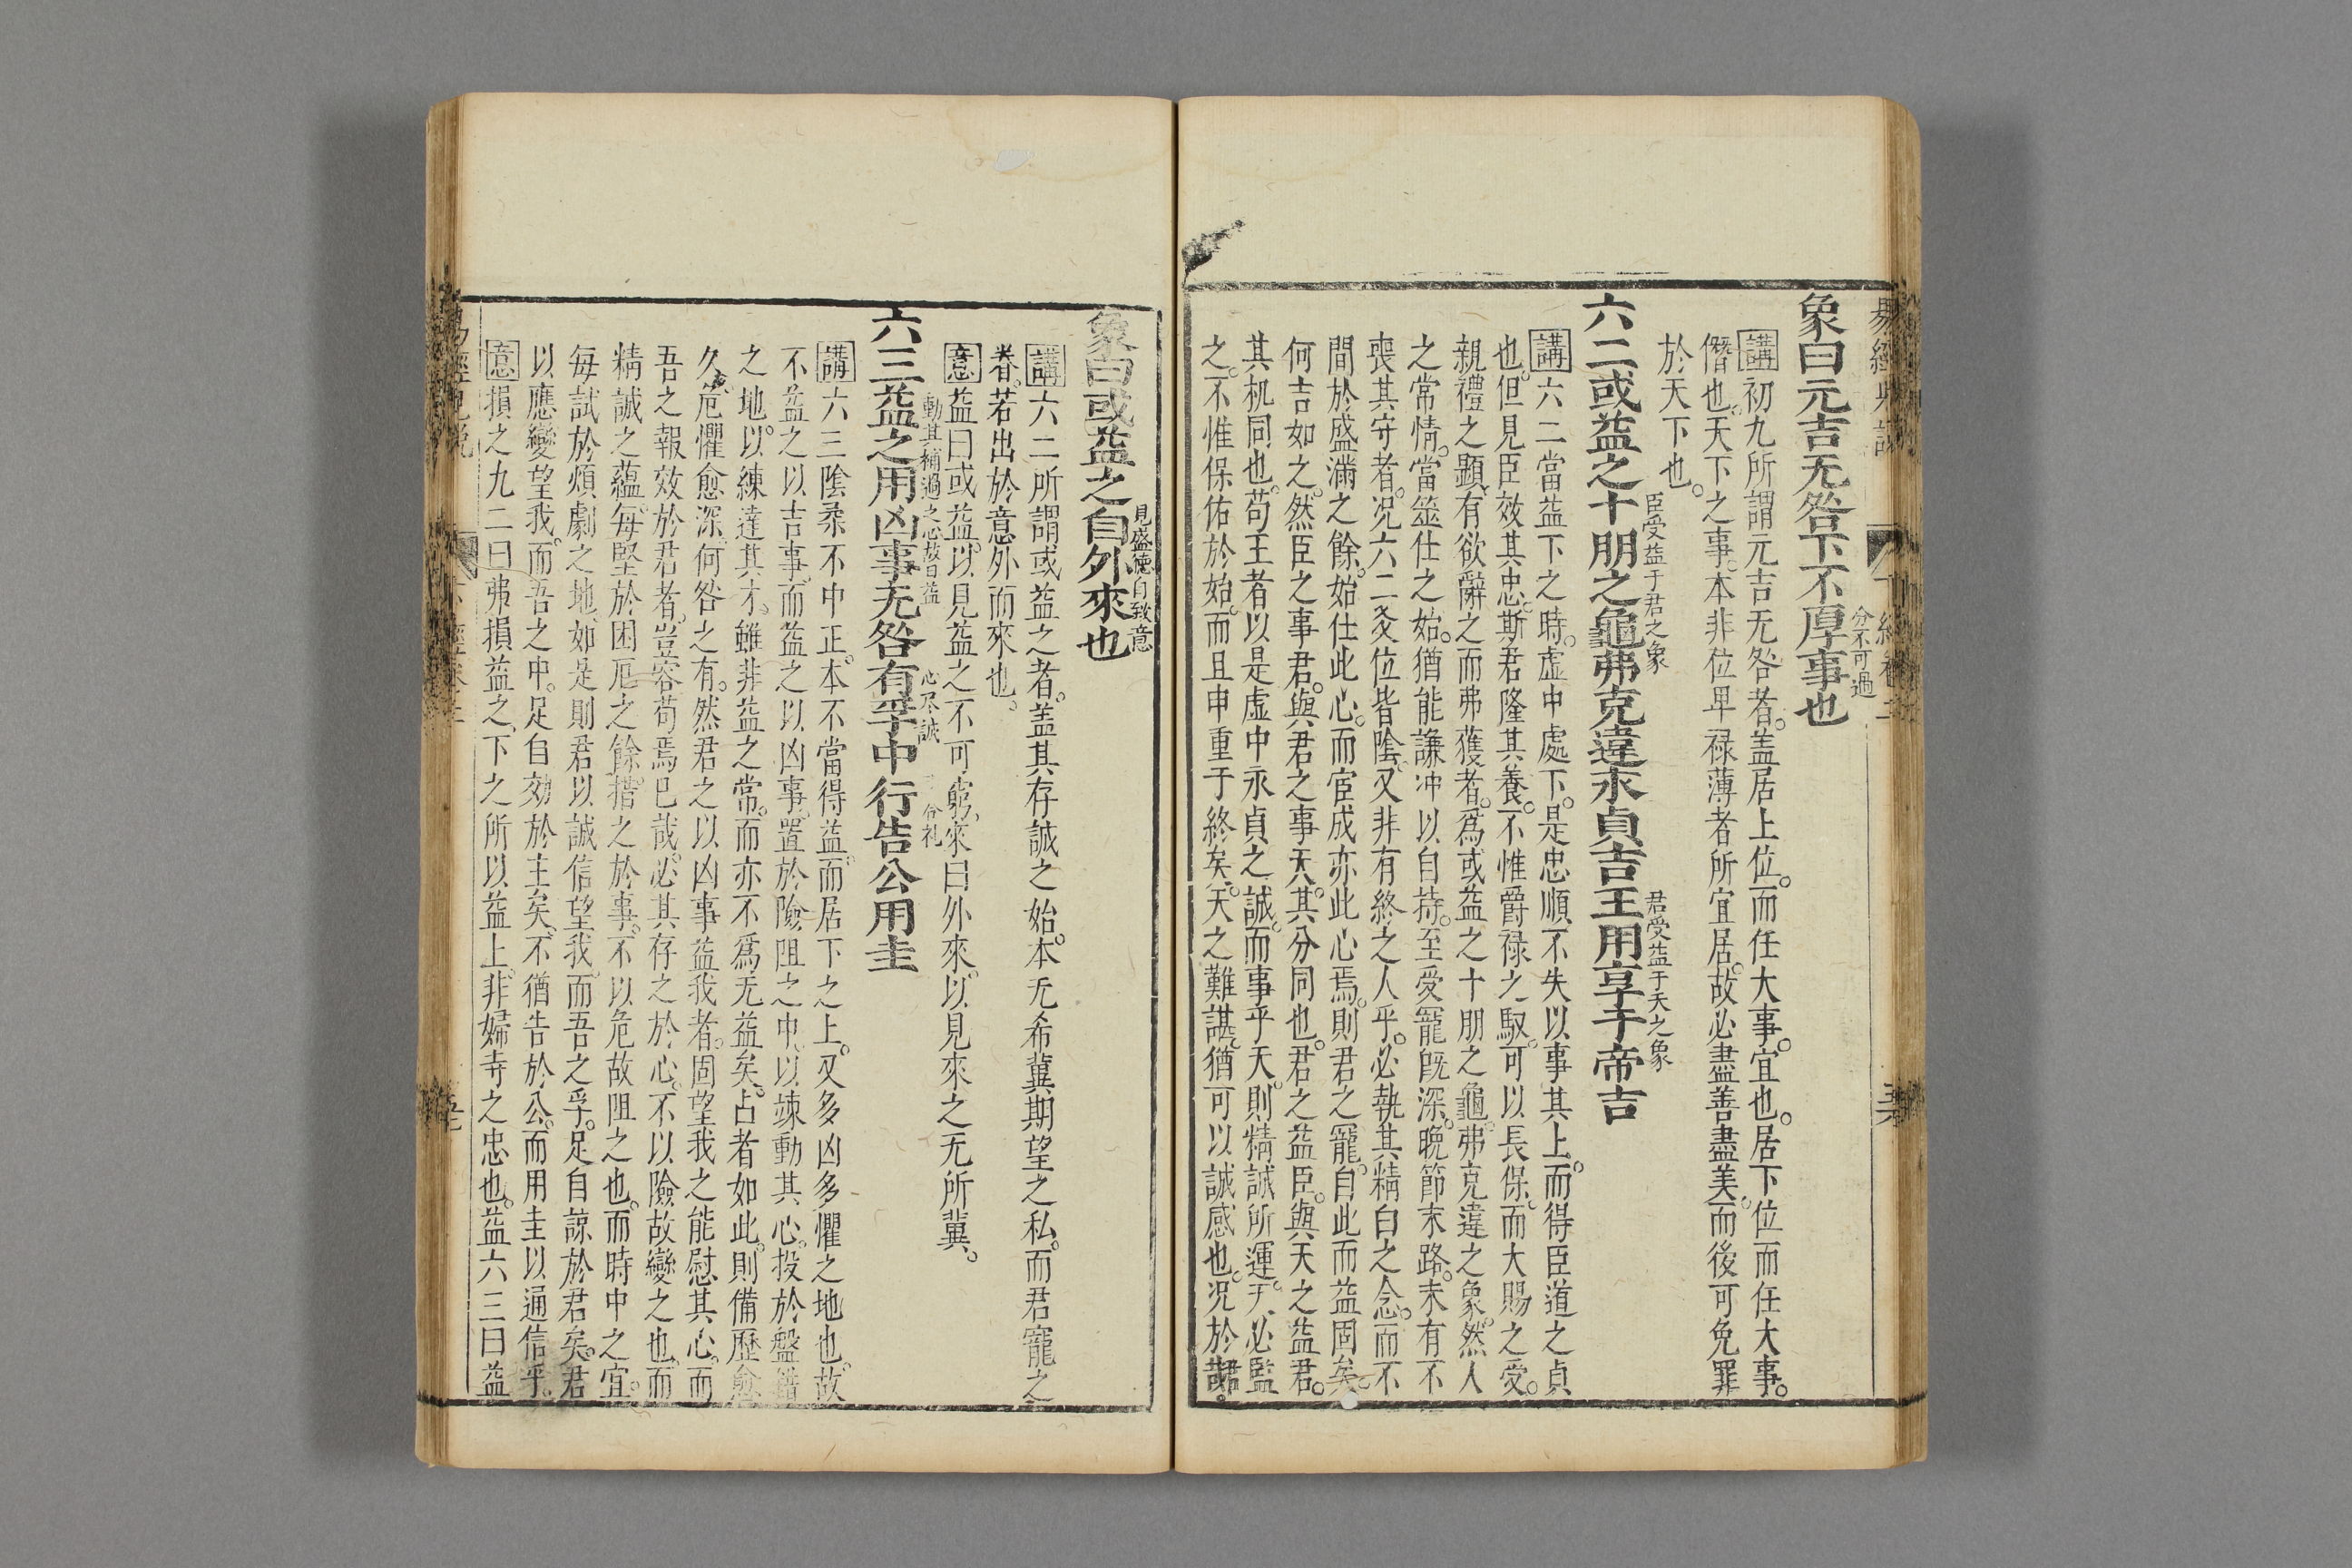 象曰元吉无咎下不厚事也
分不可過
講初九所謂元吉无咎者。盖居上位。而任大事。宜也。居下位而任大事。
僭也。天下之事。本非位卑禄薄者所宜居。故必盡善盡美。而後可免罪
於天下也。
臣受益于君之象
君受益于天之象
六二或益之十朋之龜弗克違永貞吉王用享于帝吉
講六二當益下之時。虛中處下。是忠順不失以事其上。而得臣道之貞
也。但見臣效其忠。斯君隆其養。不惟爵禄之馭。可以長保。而大賜之受。
親禮之顯。有欲辭之而弗獲者。為或益之十朋之龜。弗克違之象。然人
之常情。當筮仕之始。猶能謙冲以自持。至受寵旣深。晚節末路。未有不
喪其守者。况六二爻位皆陰。又非有終之人乎。必執其精白之念。而不
間於盛滿之餘。始仕此心。而宦成亦此心焉。則君之寵。自此而益固矣。
何吉如之。然臣之事君。與君之事天。其分同也。君之益臣。與天之益君。
其机同也。苟王者以是虛中永貞之誠。而事乎天。則精誠所運。天必監
之。不惟保佑於始。而且申重于終矣。天之難諶。猶可以誠感也。况於君
象曰或益之自外來也
見盛德自致意
講六二所謂或益之者。盖其存誠之始。本无希冀期望之私。而君寵之
眷。若出於意外而來也。
意益曰或益。以見益之不可窮。來曰外來。以見來之无所冀。
動其補過之心故曰益
心尽誠
合礼
六三益之用凶事无咎有孚中行告公用圭
講六三陰柔不中正。本不當得益。而居下之上。又多凶多懼之地也。故
不益之以吉事。而益之以凶事。置於險阻之中。以竦動其心。投於盤錯
之地。以練達其才。雖非益之常。而亦不為无益矣。占者如此。則備歷愈
久。危懼愈深。何咎之有。然君之以凶事益我者。固望我之能慰其心。而
吾之報效於君者。豈容苟焉已哉。必其存之於心。不以險故變之也。而
精誠之蘊。每堅於困厄之餘。措之於事。不以危故阻之也。而時中之宜。
每試於煩劇之地。如是則君以誠信望我。而吾之孚。足自諒於君矣。君
以應變望我。而吾之中。足自効於主矣。不猶告於公。而用圭以通信乎。
意損之九二曰弗損益之。下之所以益上。非婦寺之忠也。益六三曰益